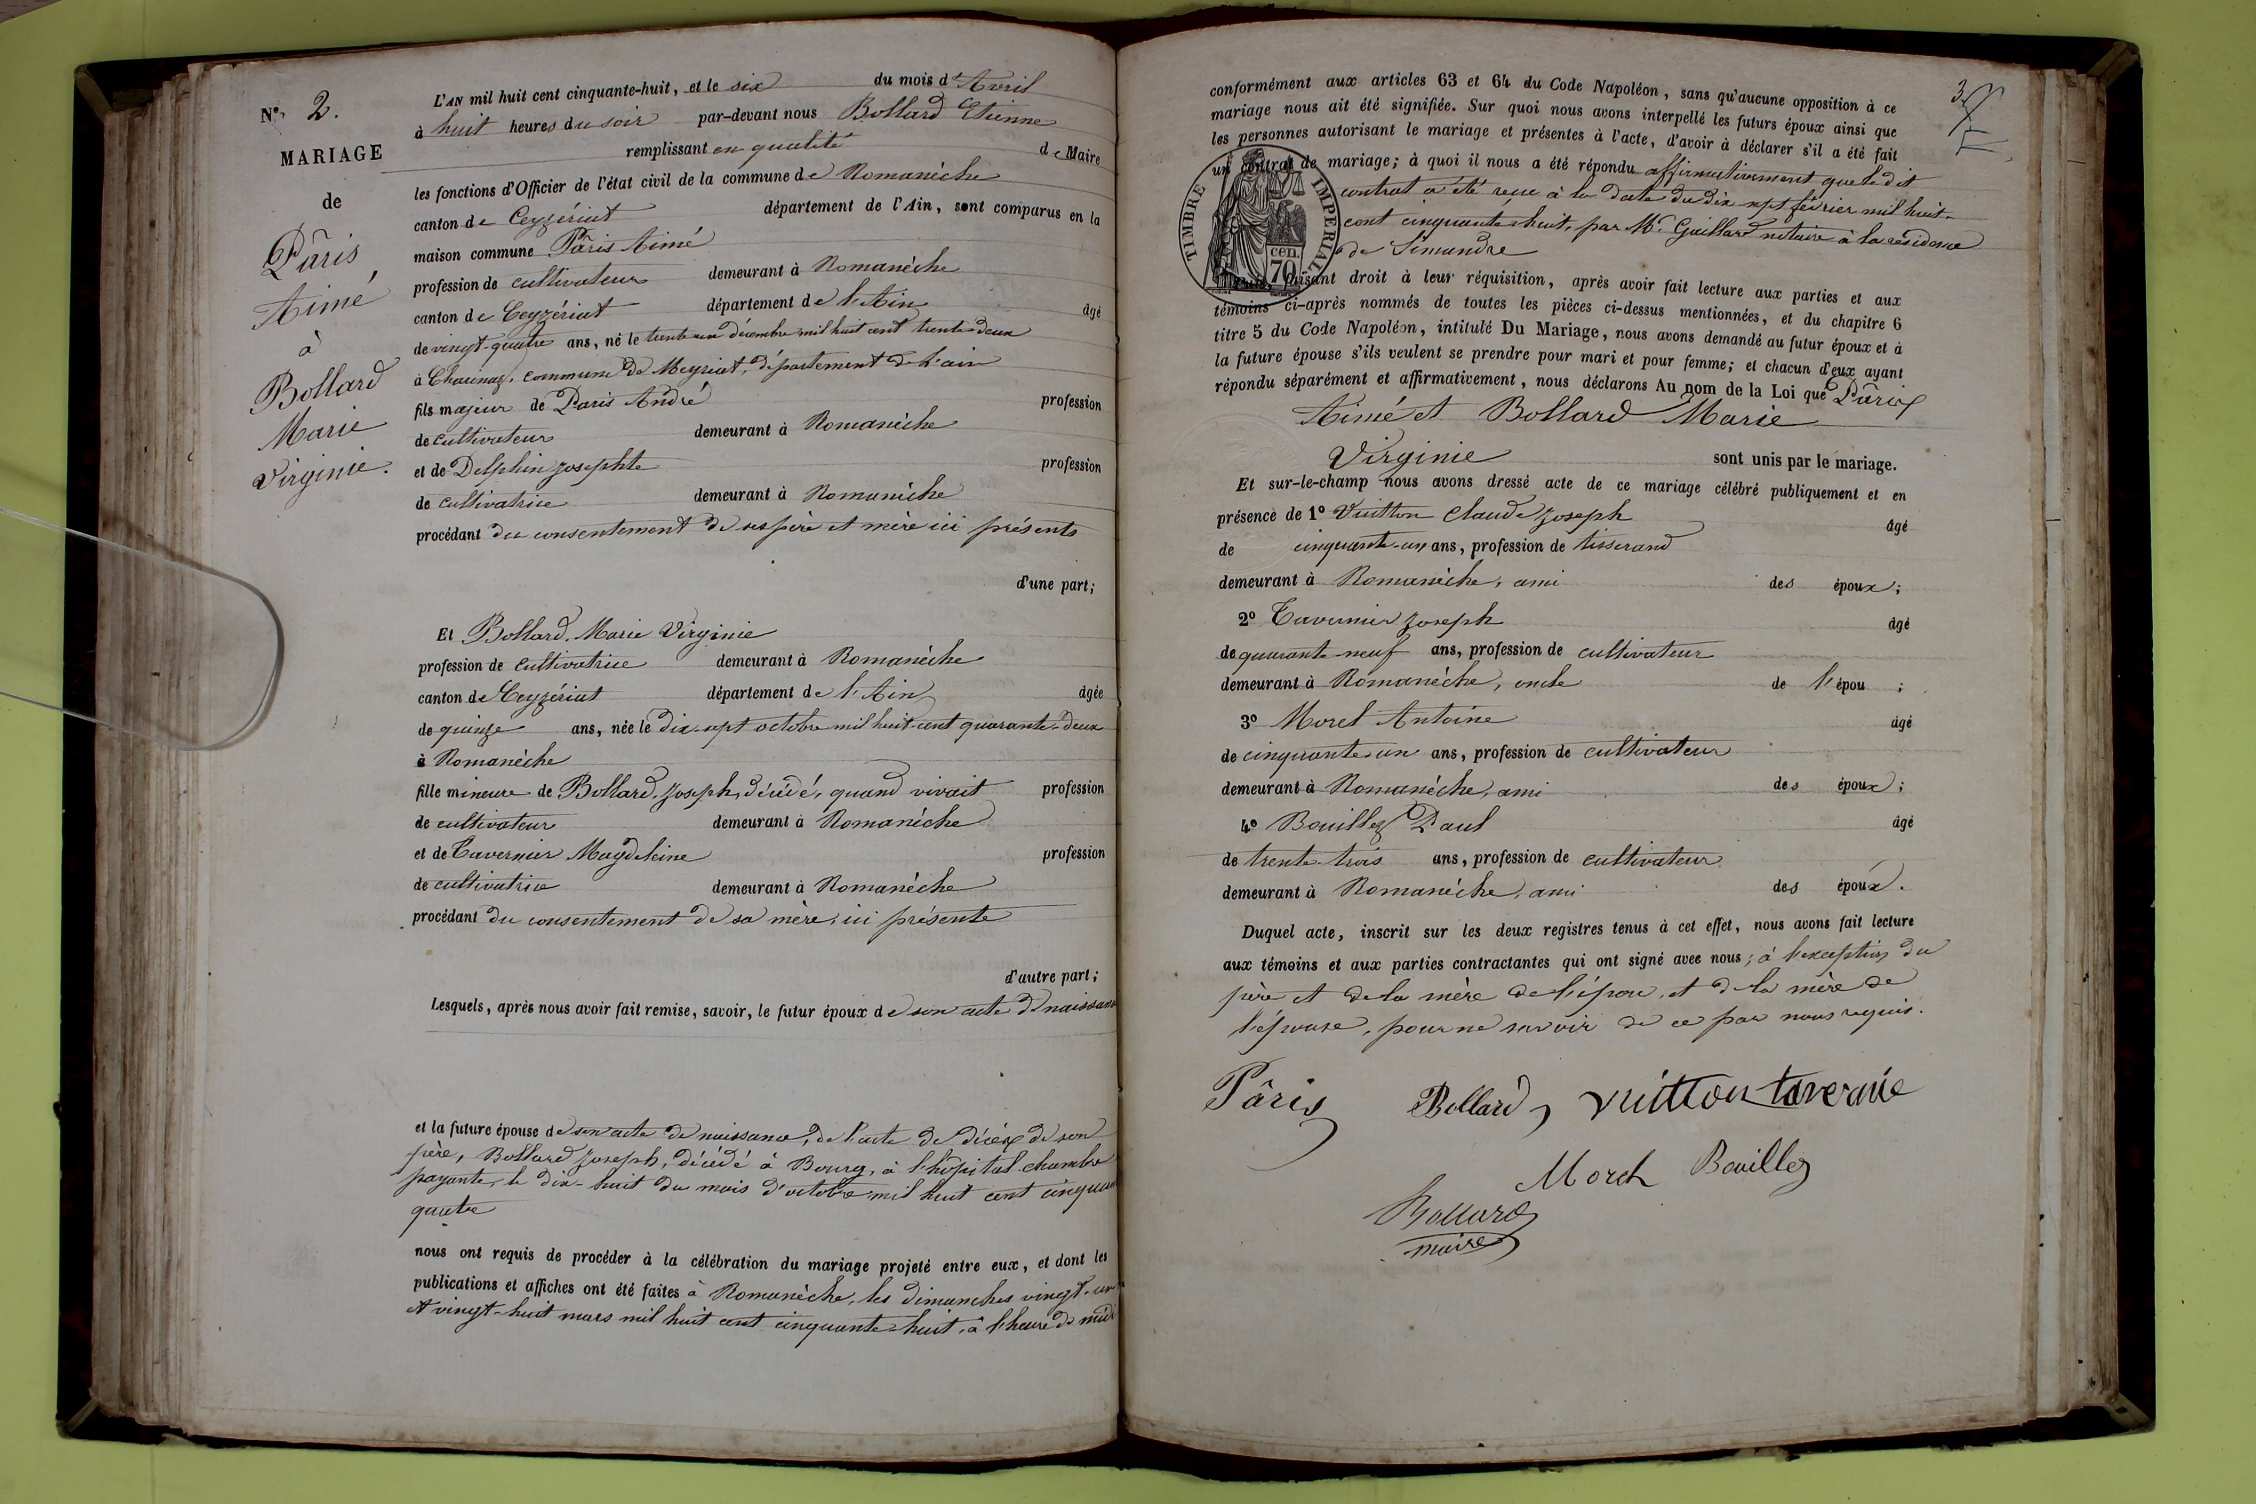 N.º 2.
MARIAGE
de
Pâris
Aimé
à
Bollard
Marie
Virginie.
L'AN mil huit cent cinquante-huit, et le six du mois d'Avril
à huit heures du soir par-devant nous Bollard Etienne
remplissant en qualité de Maire
les fonctions d'Officier de l'état civil de la commune de Romanèche
canton de Ceyzériat département de l'Ain, sont comparus en la
maison commune Pâris Aimé
profession de cultivateur demeurant à Romanèche
canton de Ceyzériat département de l'Ain âgé
de vingt-quatre ans, né le trente un décembre mil huit cent trente-deux
à commune de Meyriat, département de l'ain
fils majeur de Paris André profession
de cultivateur demeurant à Romanèche
et de Delphin Josephte profession
de cultivatrice demeurant à Romanèche
procédant du consentement de ses père et mère ici présents
d'une part;
Et Bollard Marie Virginie
profession de cultivatrice demeurant à Romanèche
canton de Ceyzériat département de l'Ain âgée
de quinze ans, née le dix-sept octobre mil huit-cent quarante-deux
à Romanèche
fille mineure de Bollard Joseph, décédé, quand vivait profession
de cultivateur demeurant à Romanèche
et de Tavernier Magdeleine profession
de cultivatrice demeurant à Romanèche
procédant du consentement de sa mère, ici présente
d'autre part;
Lesquels, après nous avoir fait remise, savoir, le futur époux de son acte de naissance
et la future épouse de son acte de naissance, de l'acte de décès de son
père, Bollard Joseph, décédé à Bourg, à l'hôpital chambre
payante, le dix-huit du mois d'octobre mil huit cent cinquante
quatre
nous ont requis de procéder à la célébration du mariage projeté entre eux, et dont les
publications et affiches ont été faites à Romanèche, les dimanches vingt-un
et vingt-huit mars mil huit cent cinquante-huit, à l'heure de midi
3
conformément aux articles 63 et 64 du Code Napoléon, sans qu'aucune opposition à ce
mariage nous ait été signifiée. Sur quoi nous avons interpellé les futurs époux ainsi que
les personnes autorisant le mariage et présentes à l'acte, d'avoir à déclarer s'il a été fait
un contrat de mariage; à quoi il nous a été répondu affirmativement que le dit
contrat a été reçu à la date du dix sept février mil huit-
cent cinquante-huit, par Me. Gaillard notaire à la résidence
de Simandre
TIMBRE IMPERIAL
70 cen.
faisant droit à leur réquisition, après avoir fait lecture aux parties et aux
témoins ci-après nommés de toutes les pièces ci-dessus mentionnées, et du chapitre 6
titre 5 du Code Napoléon, intitulé Du Mariage, nous avons demandé au futur époux et à
la future épouse s'ils veulent se prendre pour mari et pour femme; et chacun d'eux ayant
répondu séparément et affirmativement, nous déclarons Au nom de la Loi que Pâris
Aimé et Bollard Marie
Virginie sont unis par le mariage.
Et sur-le-champ nous avons dressé acte de ce mariage célébré publiquement et en
présence de 1º Vuitton Claude Joseph âgé
de cinquante-un ans, profession de tisserand
demeurant à Romanèche, ami des époux;
2º Tavernier Joseph âgé
de quarante-neuf ans, profession de cultivateur
demeurant à Romanèche, oncle de l'épou ;
3º Morel Antoine âgé
de cinquante-un ans, profession de cultivateur
demeurant à Romanèche, ami des époux;
4º Bouillez Paul âgé
de trente-trois ans, profession de cultivateur
demeurant à Romanèche, ami des époux.
Duquel acte, inscrit sur les deux registres tenus à cet effet, nous avons fait lecture
aux témoins et aux parties contractantes qui ont signé avec nous; à l'exception du
père et de la mère de l'épou, et de la mère de
l'épouse, pour ne savoir de ce par nous requis.
Pâris Bollard vuitton tavernie
Morel Bouillez
Bollard
maire